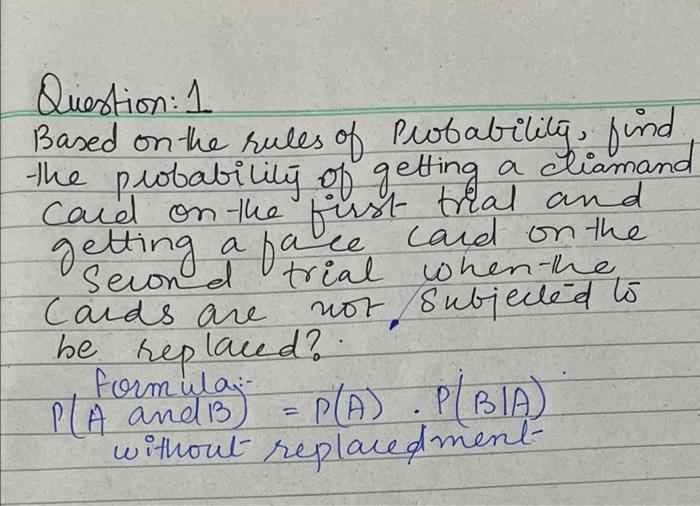 Question: 1
Based on the rules of Probability, find
the probability of getting a diamand
card on the first trial and
getting a face card on the
second trial when the
cards are not subjected to
be replaced?
Formula:-
P(A and B) = P(A) . P(B|A)
without replacedment